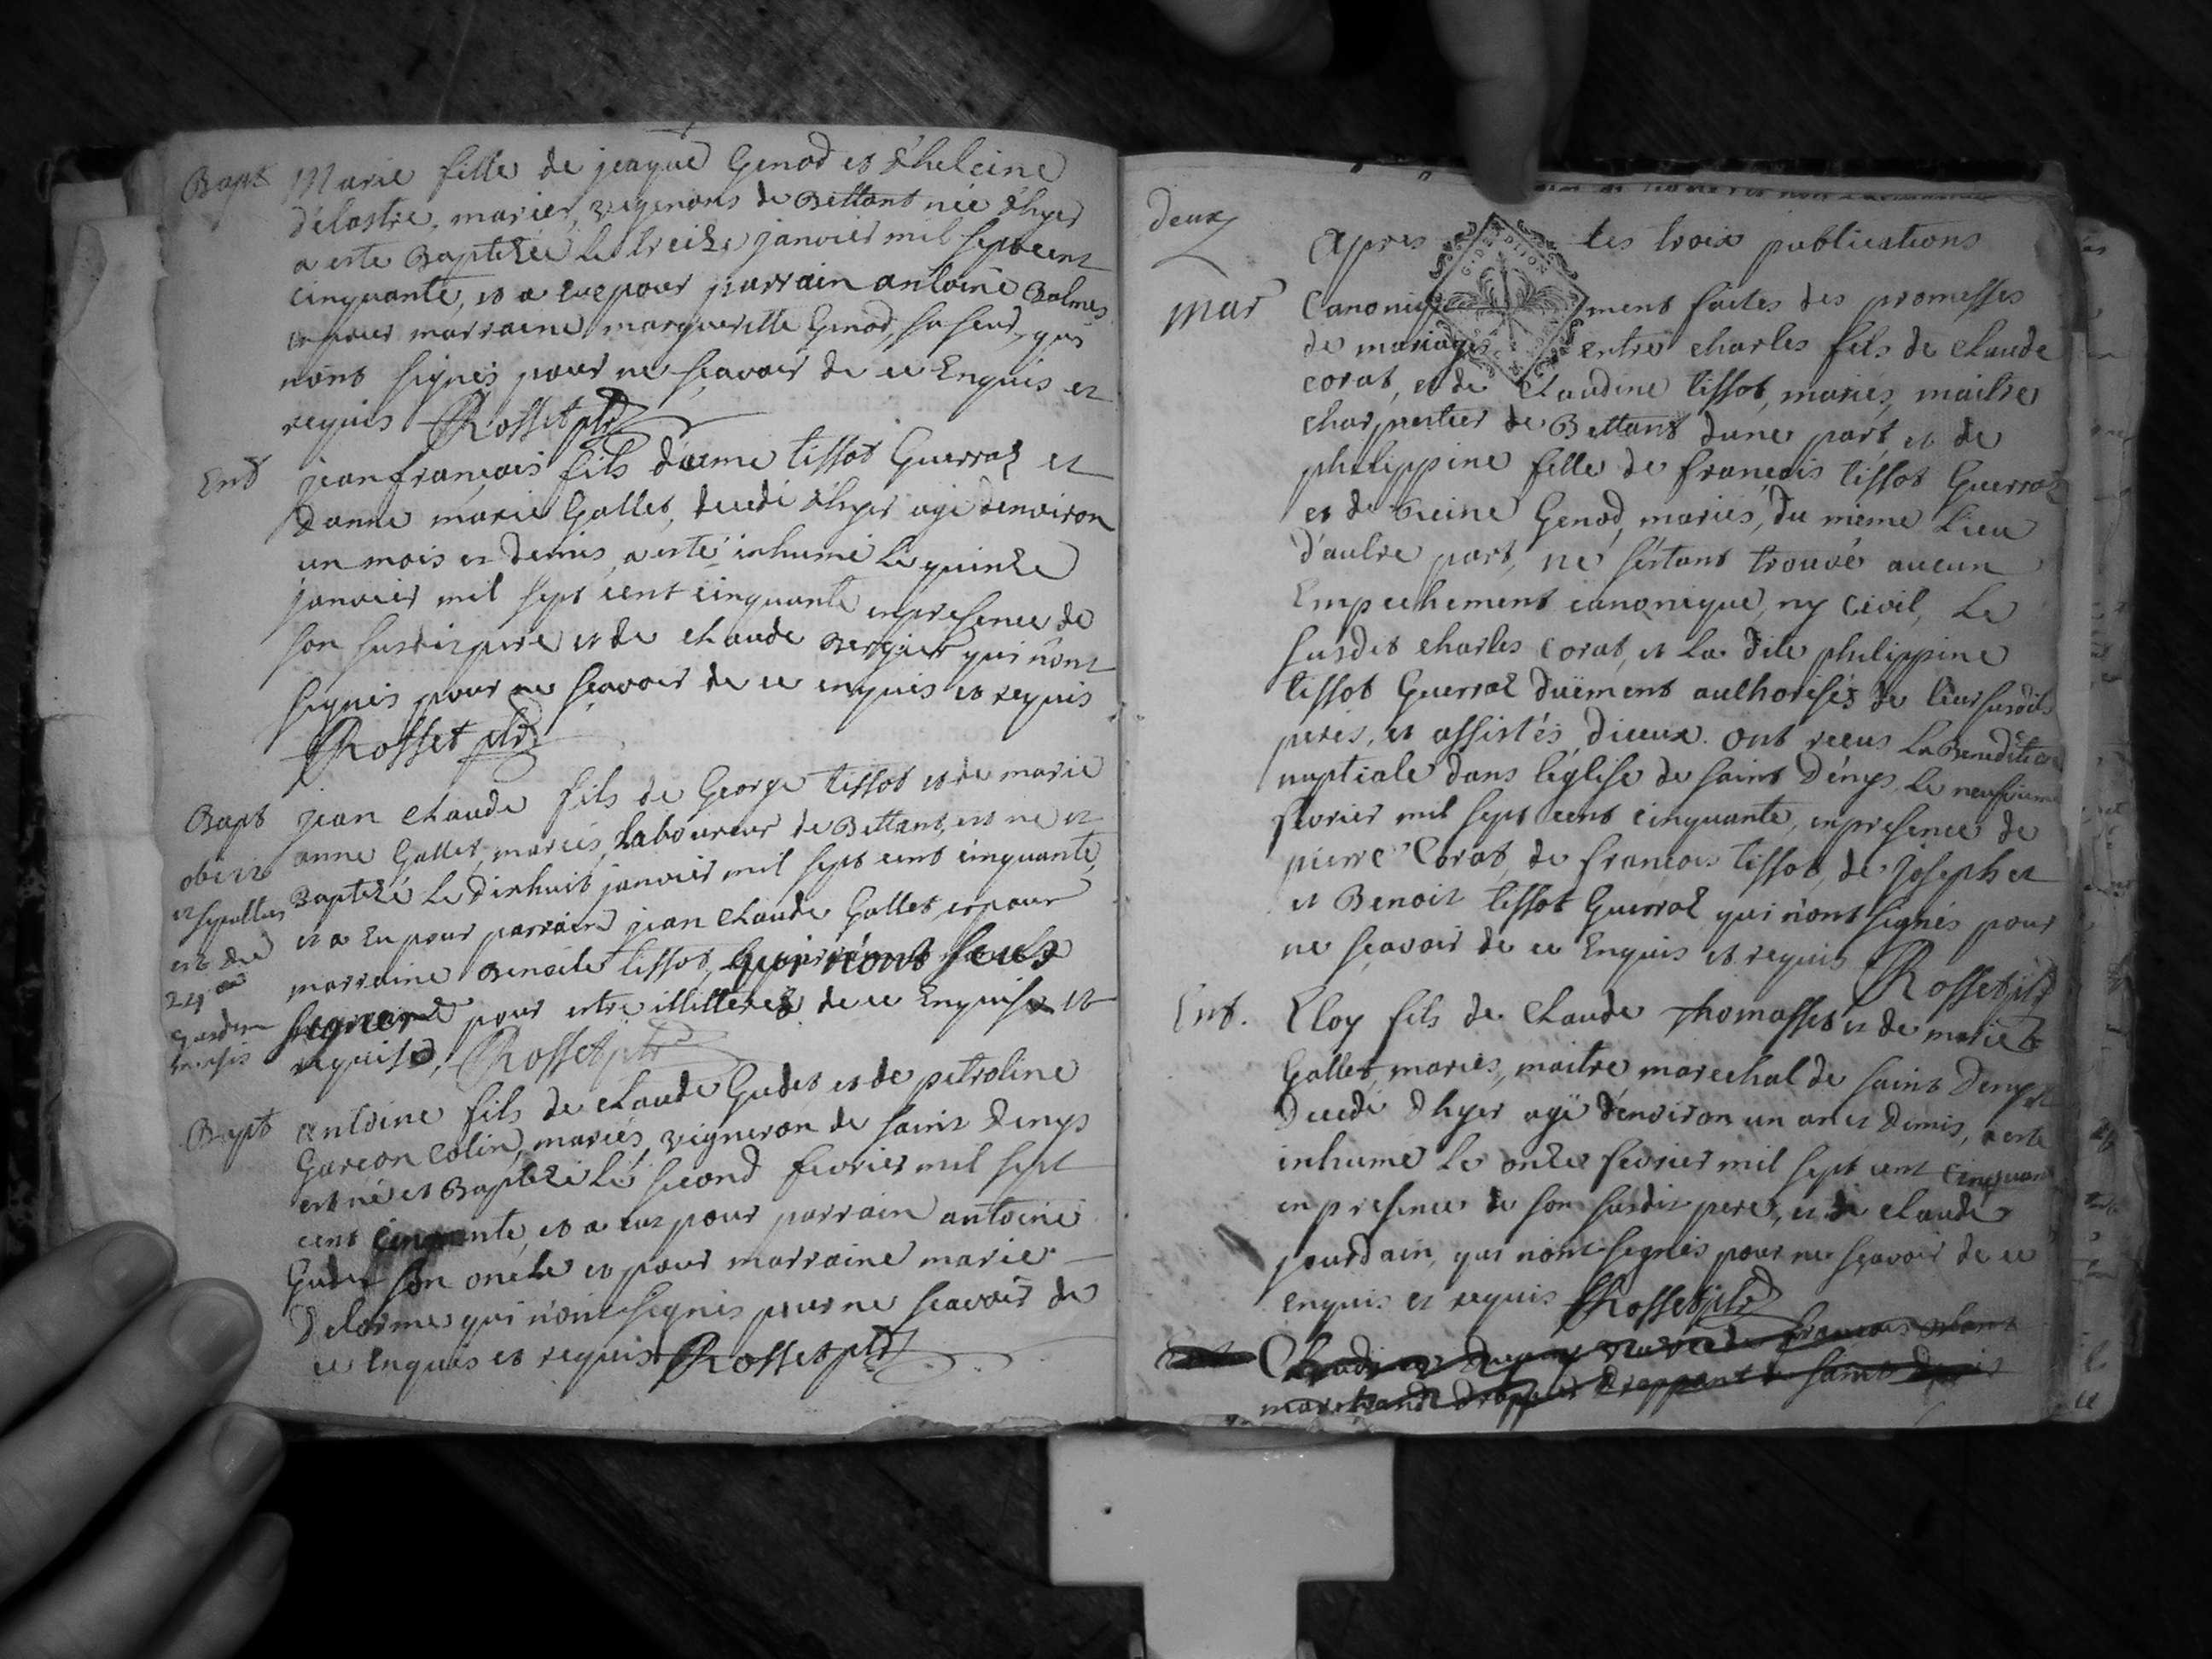 Bapt Marie fille de jeaque Genod et d'heleine
délastre, mariés, vignerons de Bettant née d'hyer
a esté Baptizée le treize janvier mil sept cent
cinquante, et a eue pour parrain antoine Balmes
et pour marraine margueritte Genod, sa seur, qui
n'ont signés pour ne sçavoir de ce Enquis et
requis Rosset ptre
Ent jean françois fils d'aime tissot Guerraz et
d'anne marie Gallet, decedé d'hyer agé denviron
un mois et demis, a esté inhumé le quinze
janvier mil sept cent cinquante en presence de
son susdit pere et de claude Bergier qui n'ont
signés pour ne sçavoir de ce enquis et requis
Rosset ptre
Bapt jean claude fils de George tissot et de marie
anne Gallet, mariés, laboureur de Bettant, est né et
obiit
Baptizé le dixhuit janvier mil sept cent cinquante,
et sepultus
et a eu pour parrain jean claude Gallet et pour
est die
marraine Benoite tissot, qui n'ont sceus
24
signer pour estre illitterez de ce Enquis et
ejusdem
mensis
requis, Rosset ptre
Bapt antoine fils de claude Gudet et de petroline
Garçon Colin, mariés, vigneron de saint Denys
est né et Baptizé le second fevrier mil sept
cent cinquante, et a eut pour parrain antoine
Gudet son oncle et pour marraine marie
Delorme qui n'ont signés pour ne scavoir de
ce Enquis et requis Rosset ptre
deux
G. DE DIJON
apres les trois publications
mar Canoniquement faites des promesses
de mariages entre charles fils de claude
corat, et de Claudine tissot, mariés, maitre
charpentier de Bettant d'une part, et de
philippine fille de françois tissot Guerraz
et de Reine Genod, mariés, du même lieu
d'autre part, ne s'estant trouvé aucun
Empechement canonique, ny civil, le
susdit charles corat, et la dite philippine
tissot Guerraz düement authorisés de leur susdits
peres, et assistés d'iceux. ont receus la Benediction
nuptiale dans l'eglise de saint Dényς le neufvieme
fevrier mil sept cent cinquante, en presence de
pierre Corat, de françois tissot, de Joseph et
et Benoit tissot Guerraz qui n'ont signés pour
ne sçavoir de ce Enquis et requis Rosset ptre
Ent. Eloy fils de claude Thomasset et de marie
Gallet, mariés, maitre marechal de saint Denys
decedé d'hyer agé d'environ un an et demis, a esté
inhumé le onze fevrier mil sept cent cinquante
en presence de son susdit pere, et de claude
jourdain, qui n'ont signés pour ne sçavoir de ce
enquis et requis Rosset ptre
françois
marchand drappier saint